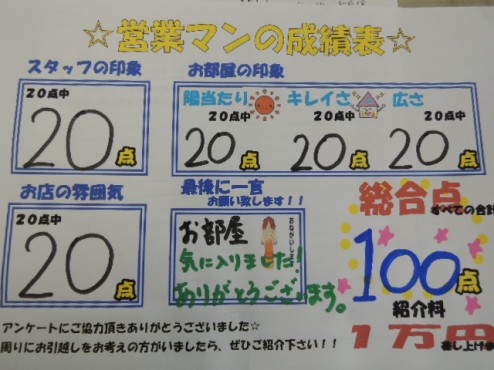 ☆営業マンの成績表☆
スタッフの印象
20点中
20点
お部屋の印象
陽当たり キレイさ 広さ
20点中 20点中 20点中
20点 20点 20点
お店の雰囲気
20点中
20点
最後に一言
お願い致します!!
お部屋
気に入りました!
ありがとうございます。
総合点
すべての合計
100点
紹介料
1万円
差し上げま
アンケートにご協力頂きありがとうございました☆
周りにお引越しをお考えの方がいましたら、ぜひご紹介下さい!!